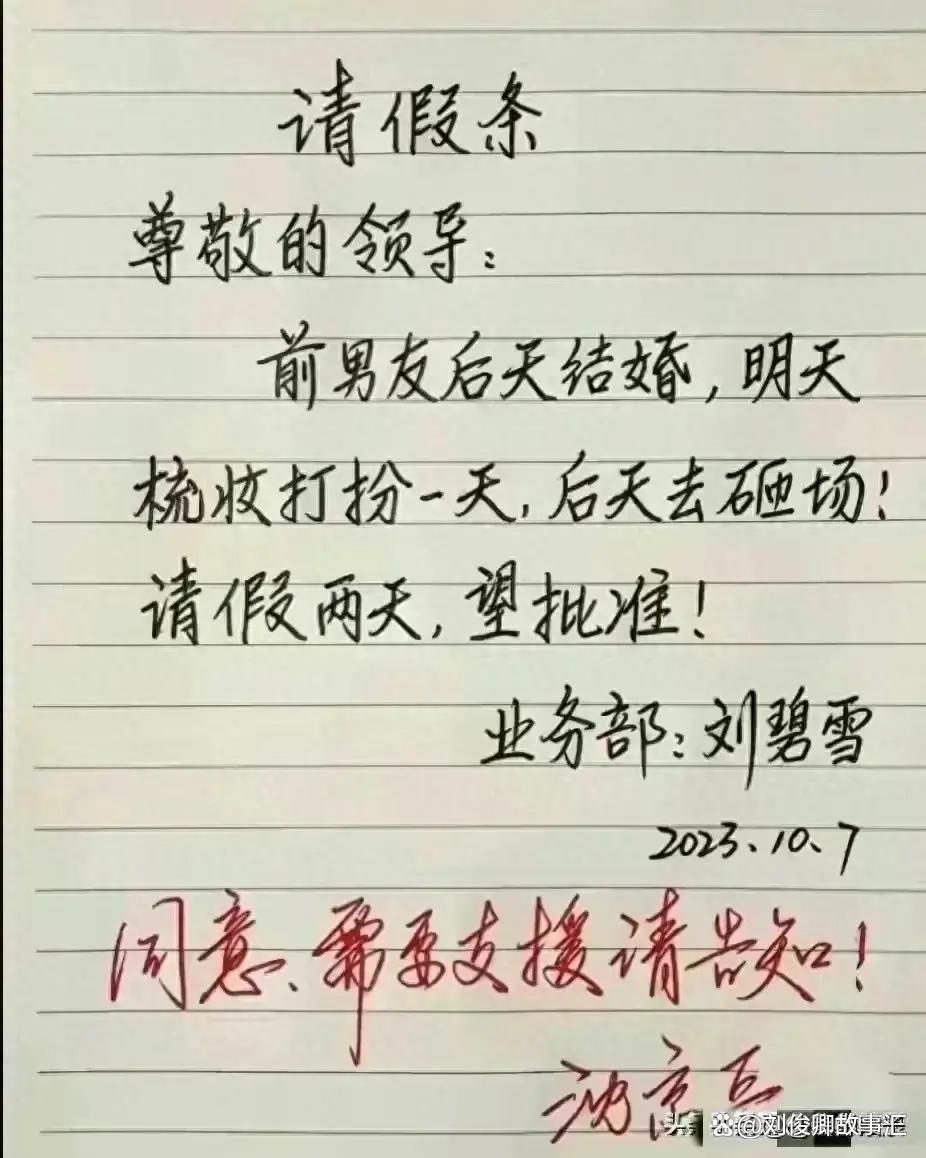 请假条
尊敬的领导：
前男友后天结婚，明天
梳妆打扮一天，后天去砸场！
请假两天，望批准！
业务部：刘碧雪
2023.10.7
同意、需要支援请告知！
@刘俊卿故事汇